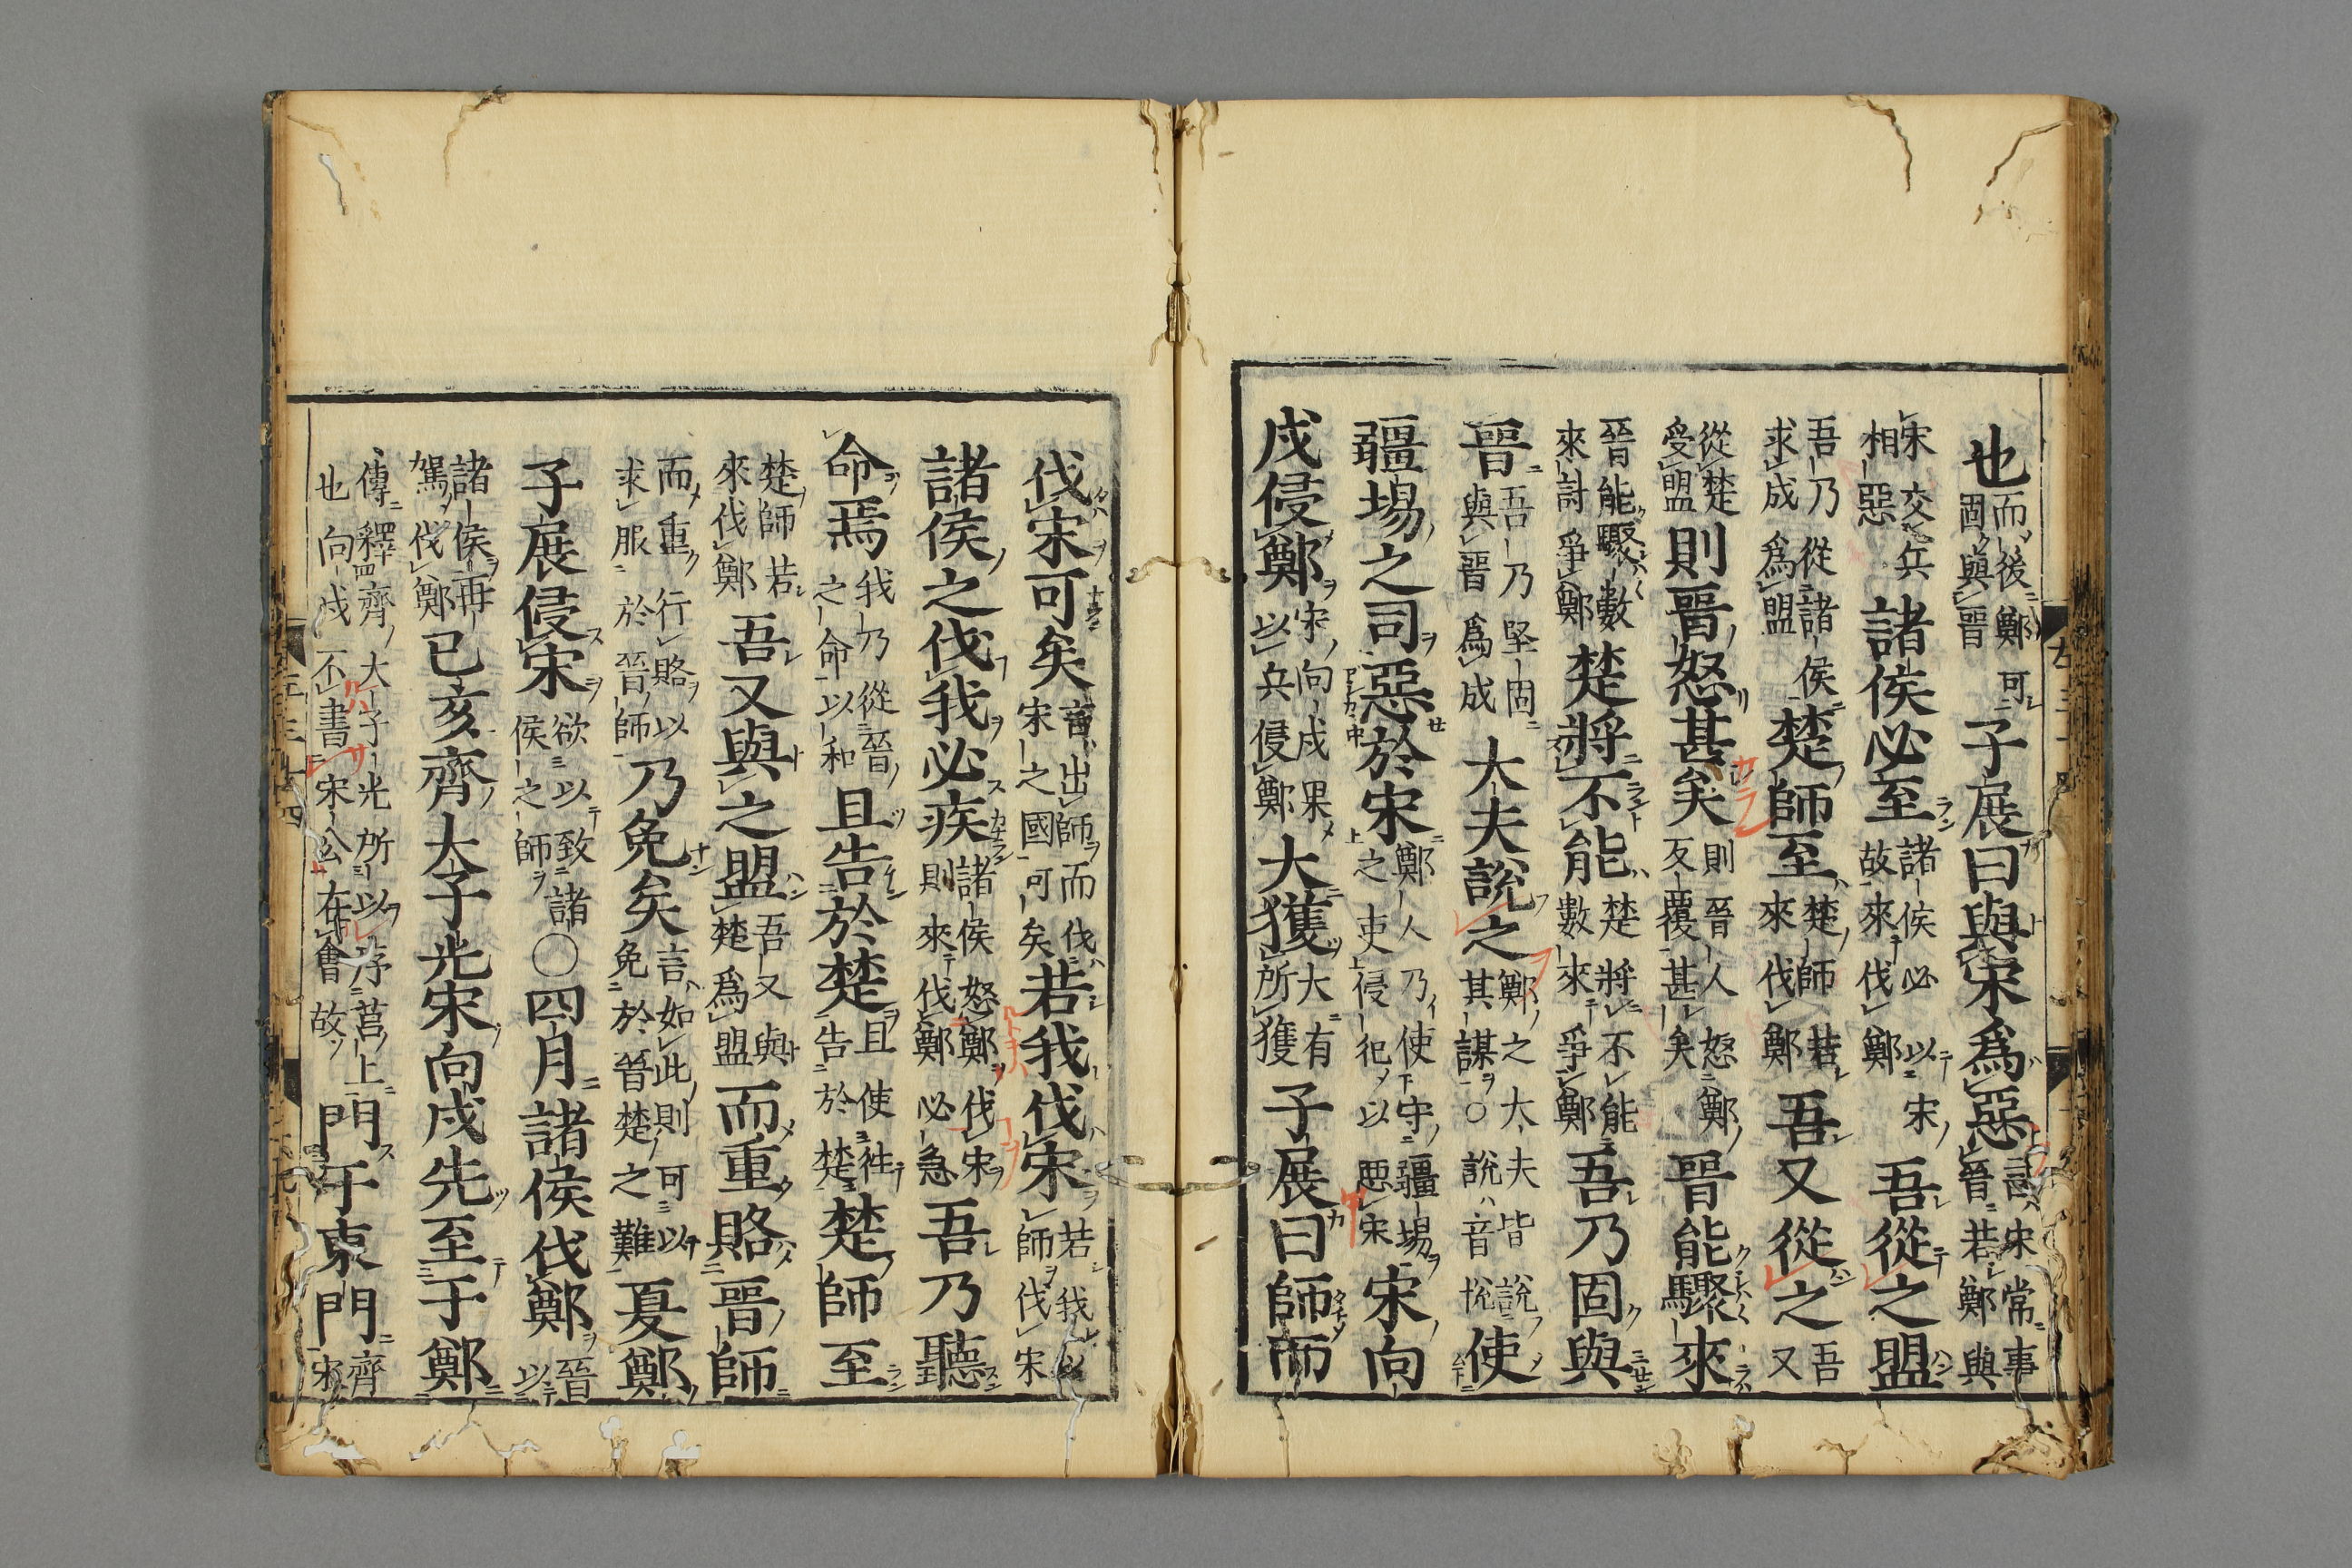 也而後鄭可固與晉子展曰與宋爲惡宋常事晉若鄭與
宋交兵相惡諸侯必至諸侯必以宋故來伐鄭吾從之盟
吾乃從諸侯求成爲盟楚師至楚師若來伐鄭吾又從之吾又
從楚受盟則晉怒甚矣則晉人怒鄭反覆甚矣晉能驟來
晉能驟數來討爭鄭楚將不能楚將不能數來爭鄭吾乃固與
晉吾乃堅固與晉爲成大夫說之鄭之大夫皆說其謀○說音悅使
疆埸之司惡於宋鄭人乃使守疆埸之吏侵犯以惡宋宋向
戌侵鄭宋向戌果以兵侵鄭大獲大有所獲子展曰師而
伐宋可矣言出師而伐宋之國可矣若我伐宋若我以師伐宋
諸侯之伐我必疾諸侯怒鄭伐宋則來伐鄭必急吾乃聽
命焉我乃從晉之命以和且告於楚且使往告於楚楚師至
楚師若來伐鄭吾又與之盟吾又與楚爲盟而重賂晉師
而重行賂以求服於晉師乃免矣言如此則可以免於晉楚之難夏鄭
子展侵宋欲以致諸侯之師○四月諸侯伐鄭晉以
諸侯再駕伐鄭己亥齊大子光宋向戌先至于鄭
傳釋齊大子光所以序莒上也向戌不書宋公在會故門于東門齊宋